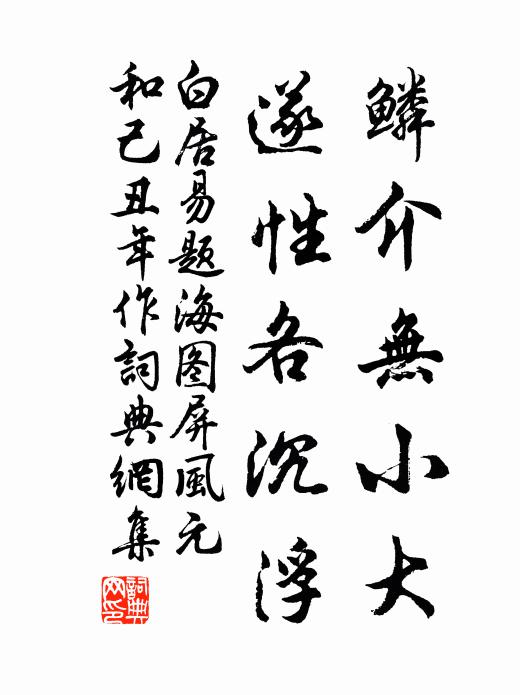 鱗介無小大
遂性各沉浮
白居易題海图屏風元
和己丑年作詞典網集
詞典网印